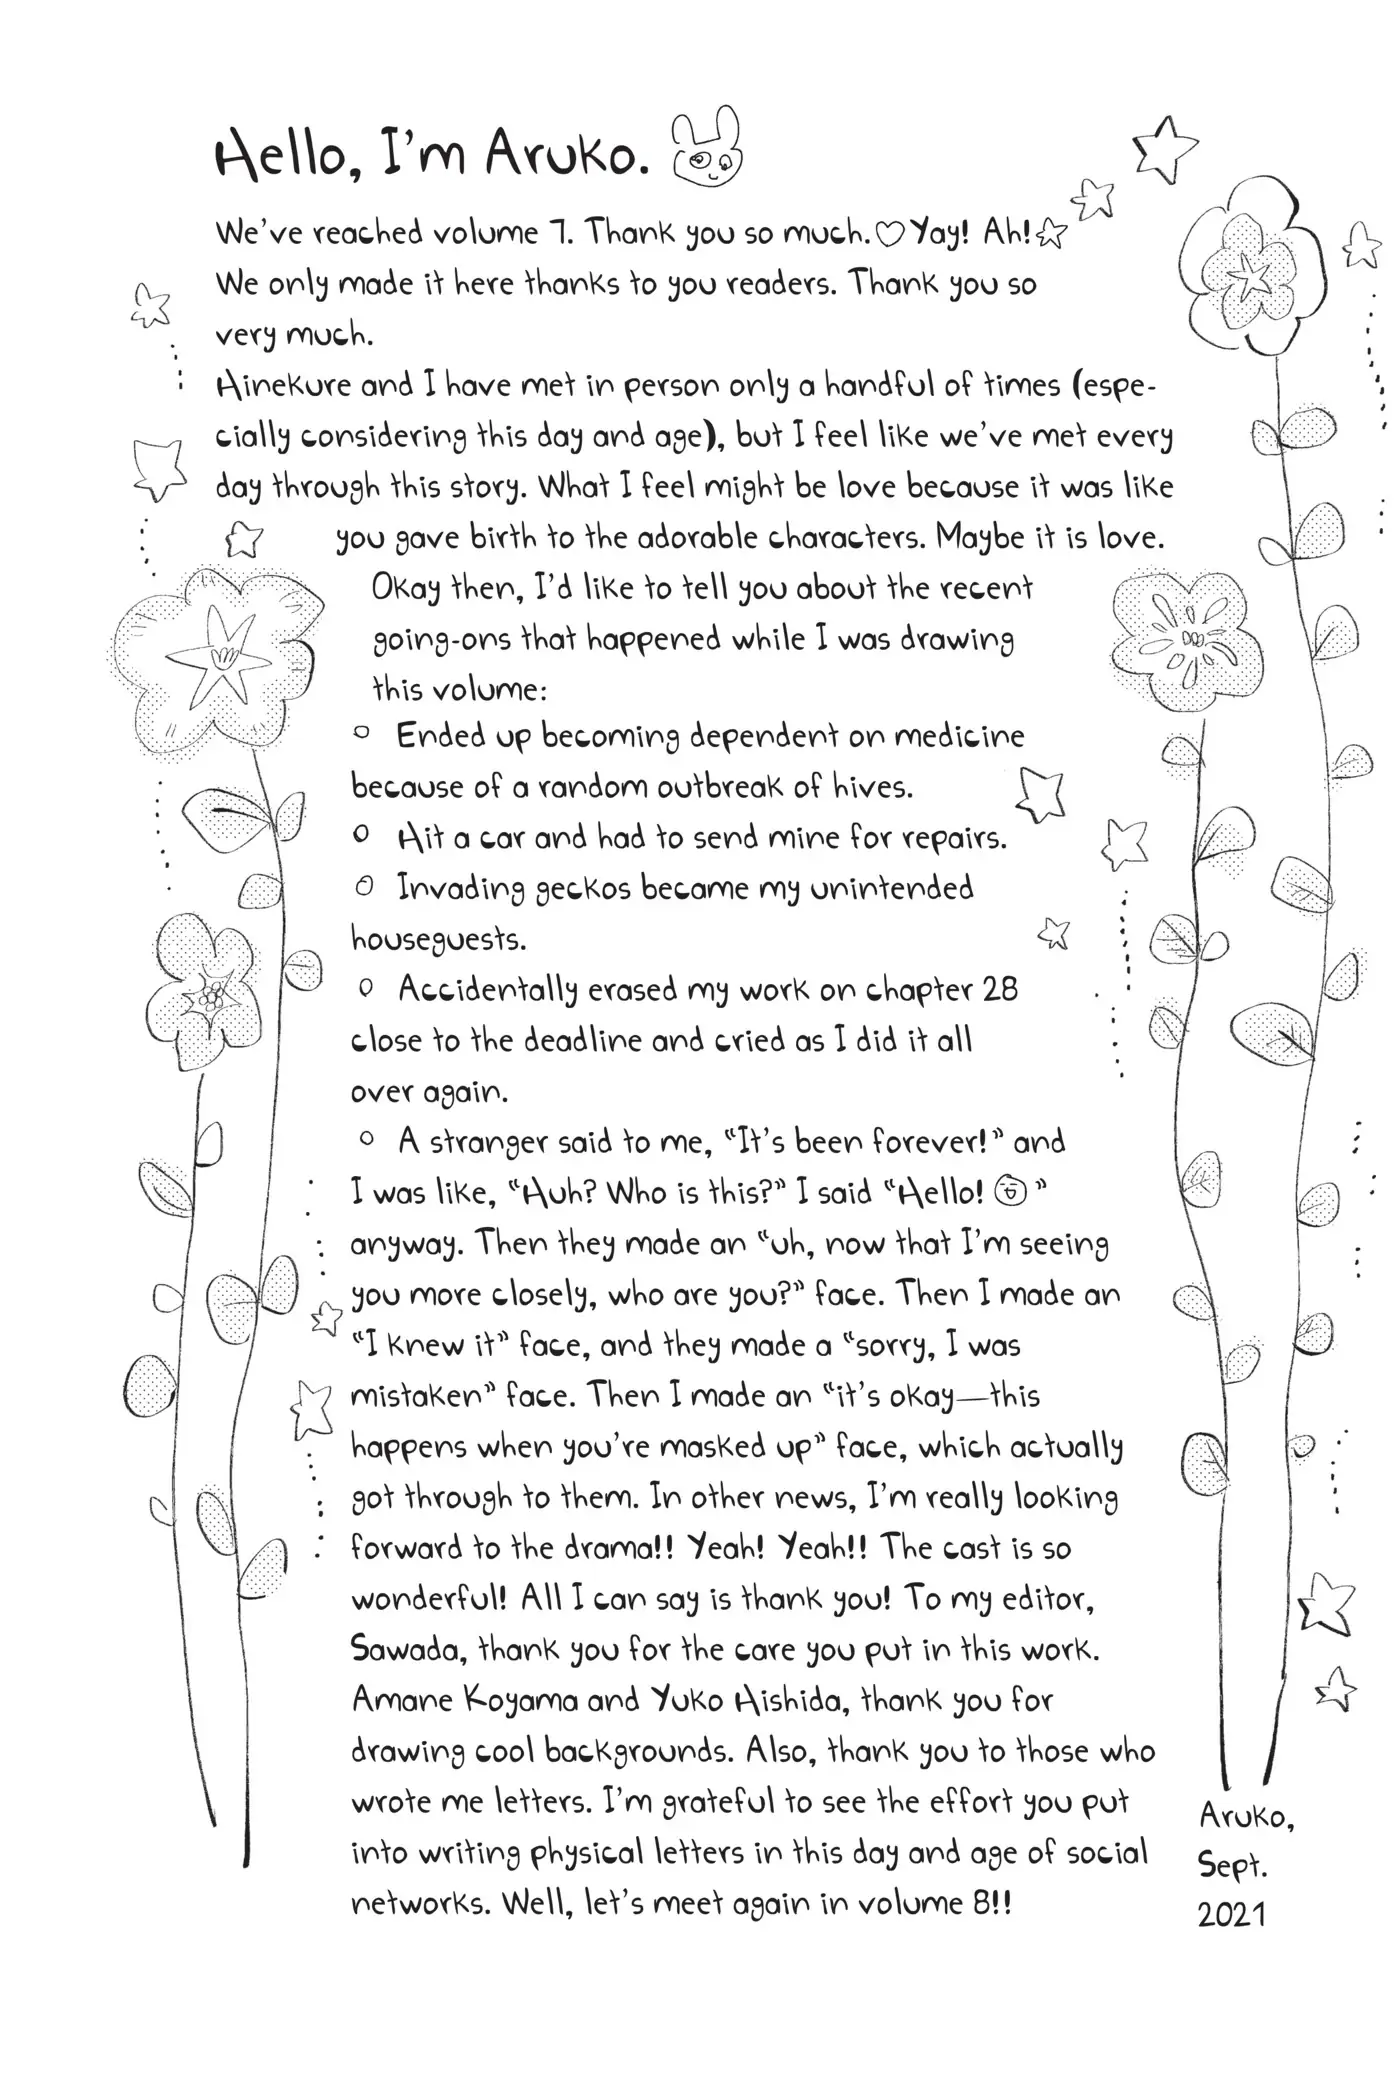 Hello, I'm Aruko.
We've reached volume 7. Thank you so much.♡Yay! Ah!☆
We only made it here thanks to you readers. Thank you so
very much.
Hinekure and I have met in person only a handful of times (espe-
cially considering this day and age), but I feel like we've met every
day through this story. What I feel might be love because it was like
you gave birth to the adorable characters. Maybe it is love.
Okay then, I'd like to tell you about the recent
going-ons that happened while I was drawing
this volume:
○ Ended up becoming dependent on medicine
because of a random outbreak of hives.
○ Hit a car and had to send mine for repairs.
○ Invading geckos became my unintended
houseguests.
○ Accidentally erased my work on chapter 28
close to the deadline and cried as I did it all
over again.
○ A stranger said to me, “It's been forever!” and
I was like, “Huh? Who is this?” I said “Hello! ”
anyway. Then they made an “uh, now that I'm seeing
you more closely, who are you?” face. Then I made an
“I knew it” face, and they made a “sorry, I was
mistaken” face. Then I made an “it's okay—this
happens when you're masked up” face, which actually
got through to them. In other news, I'm really looking
forward to the drama!! Yeah! Yeah!! The cast is so
wonderful! All I can say is thank you! To my editor,
Sawada, thank you for the care you put in this work.
Amane Koyama and Yuko Hishida, thank you for
drawing cool backgrounds. Also, thank you to those who
wrote me letters. I'm grateful to see the effort you put
into writing physical letters in this day and age of social
networks. Well, let's meet again in volume 8!!
Aruko,
Sept.
2021